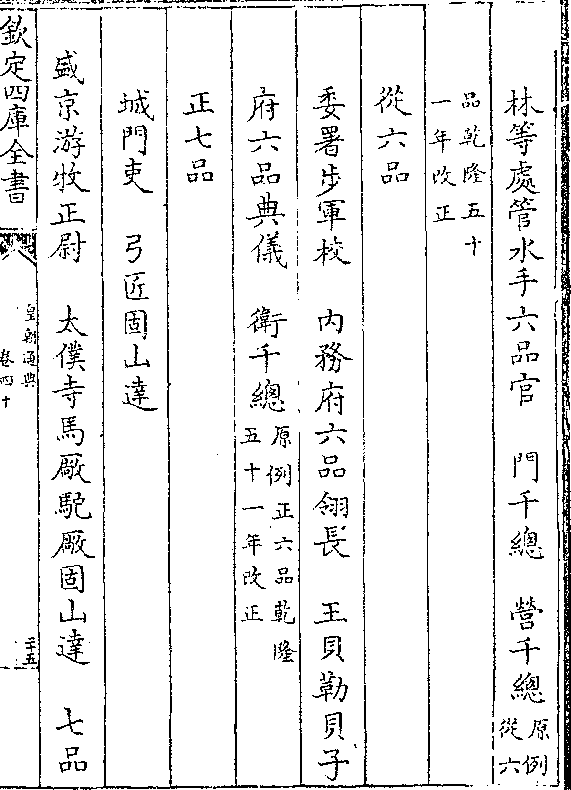 林等處管水手六品官　門千總　營千總原例從六
品乾隆五十一年改正
從六品
委署步軍校　內務府六品翎長　王貝勒貝子
府六品典儀　衛千總原例正六品乾隆五十一年改正
正七品
城門吏　弓匠固山達
盛京游牧正尉　太僕寺馬廠駝廠固山達　七品
欽定四庫全書
皇朝通典
卷四十
二十五